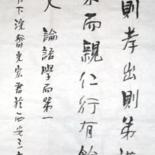 則孝出則弟
而親仁行有餘
文 論語學而第一
下浣 於西安